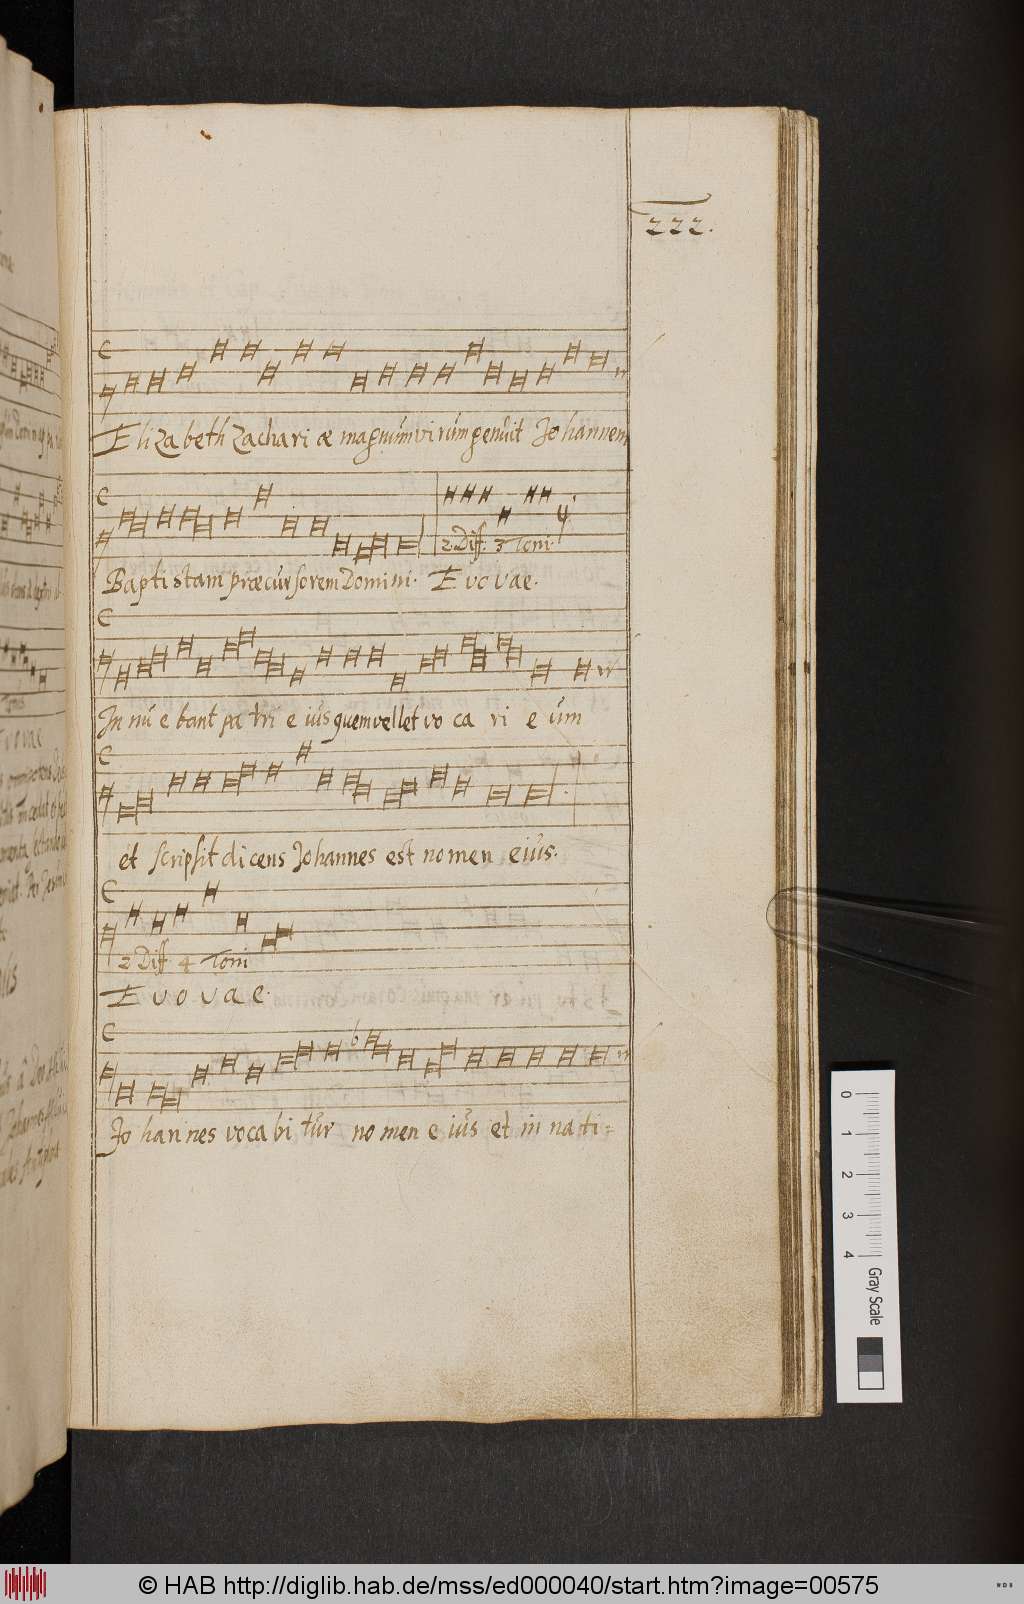 222.
Elizabeth Zachariæ magnum virum genuit Johannem
2 Diff. 3 Toni.
Baptistam præcursorem Domini. Evovae.
Innuebant patri eius quem vellet vocari eum
et scripsit dicens Johannes est nomen eius.
2 Diff. 4 Toni
Evovae.
Johannes vocabitur nomen eius et in nati=
0 1 2 3 4 Gray Scale
© HAB http://diglib.hab.de/mss/ed000040/start.htm?image=00575